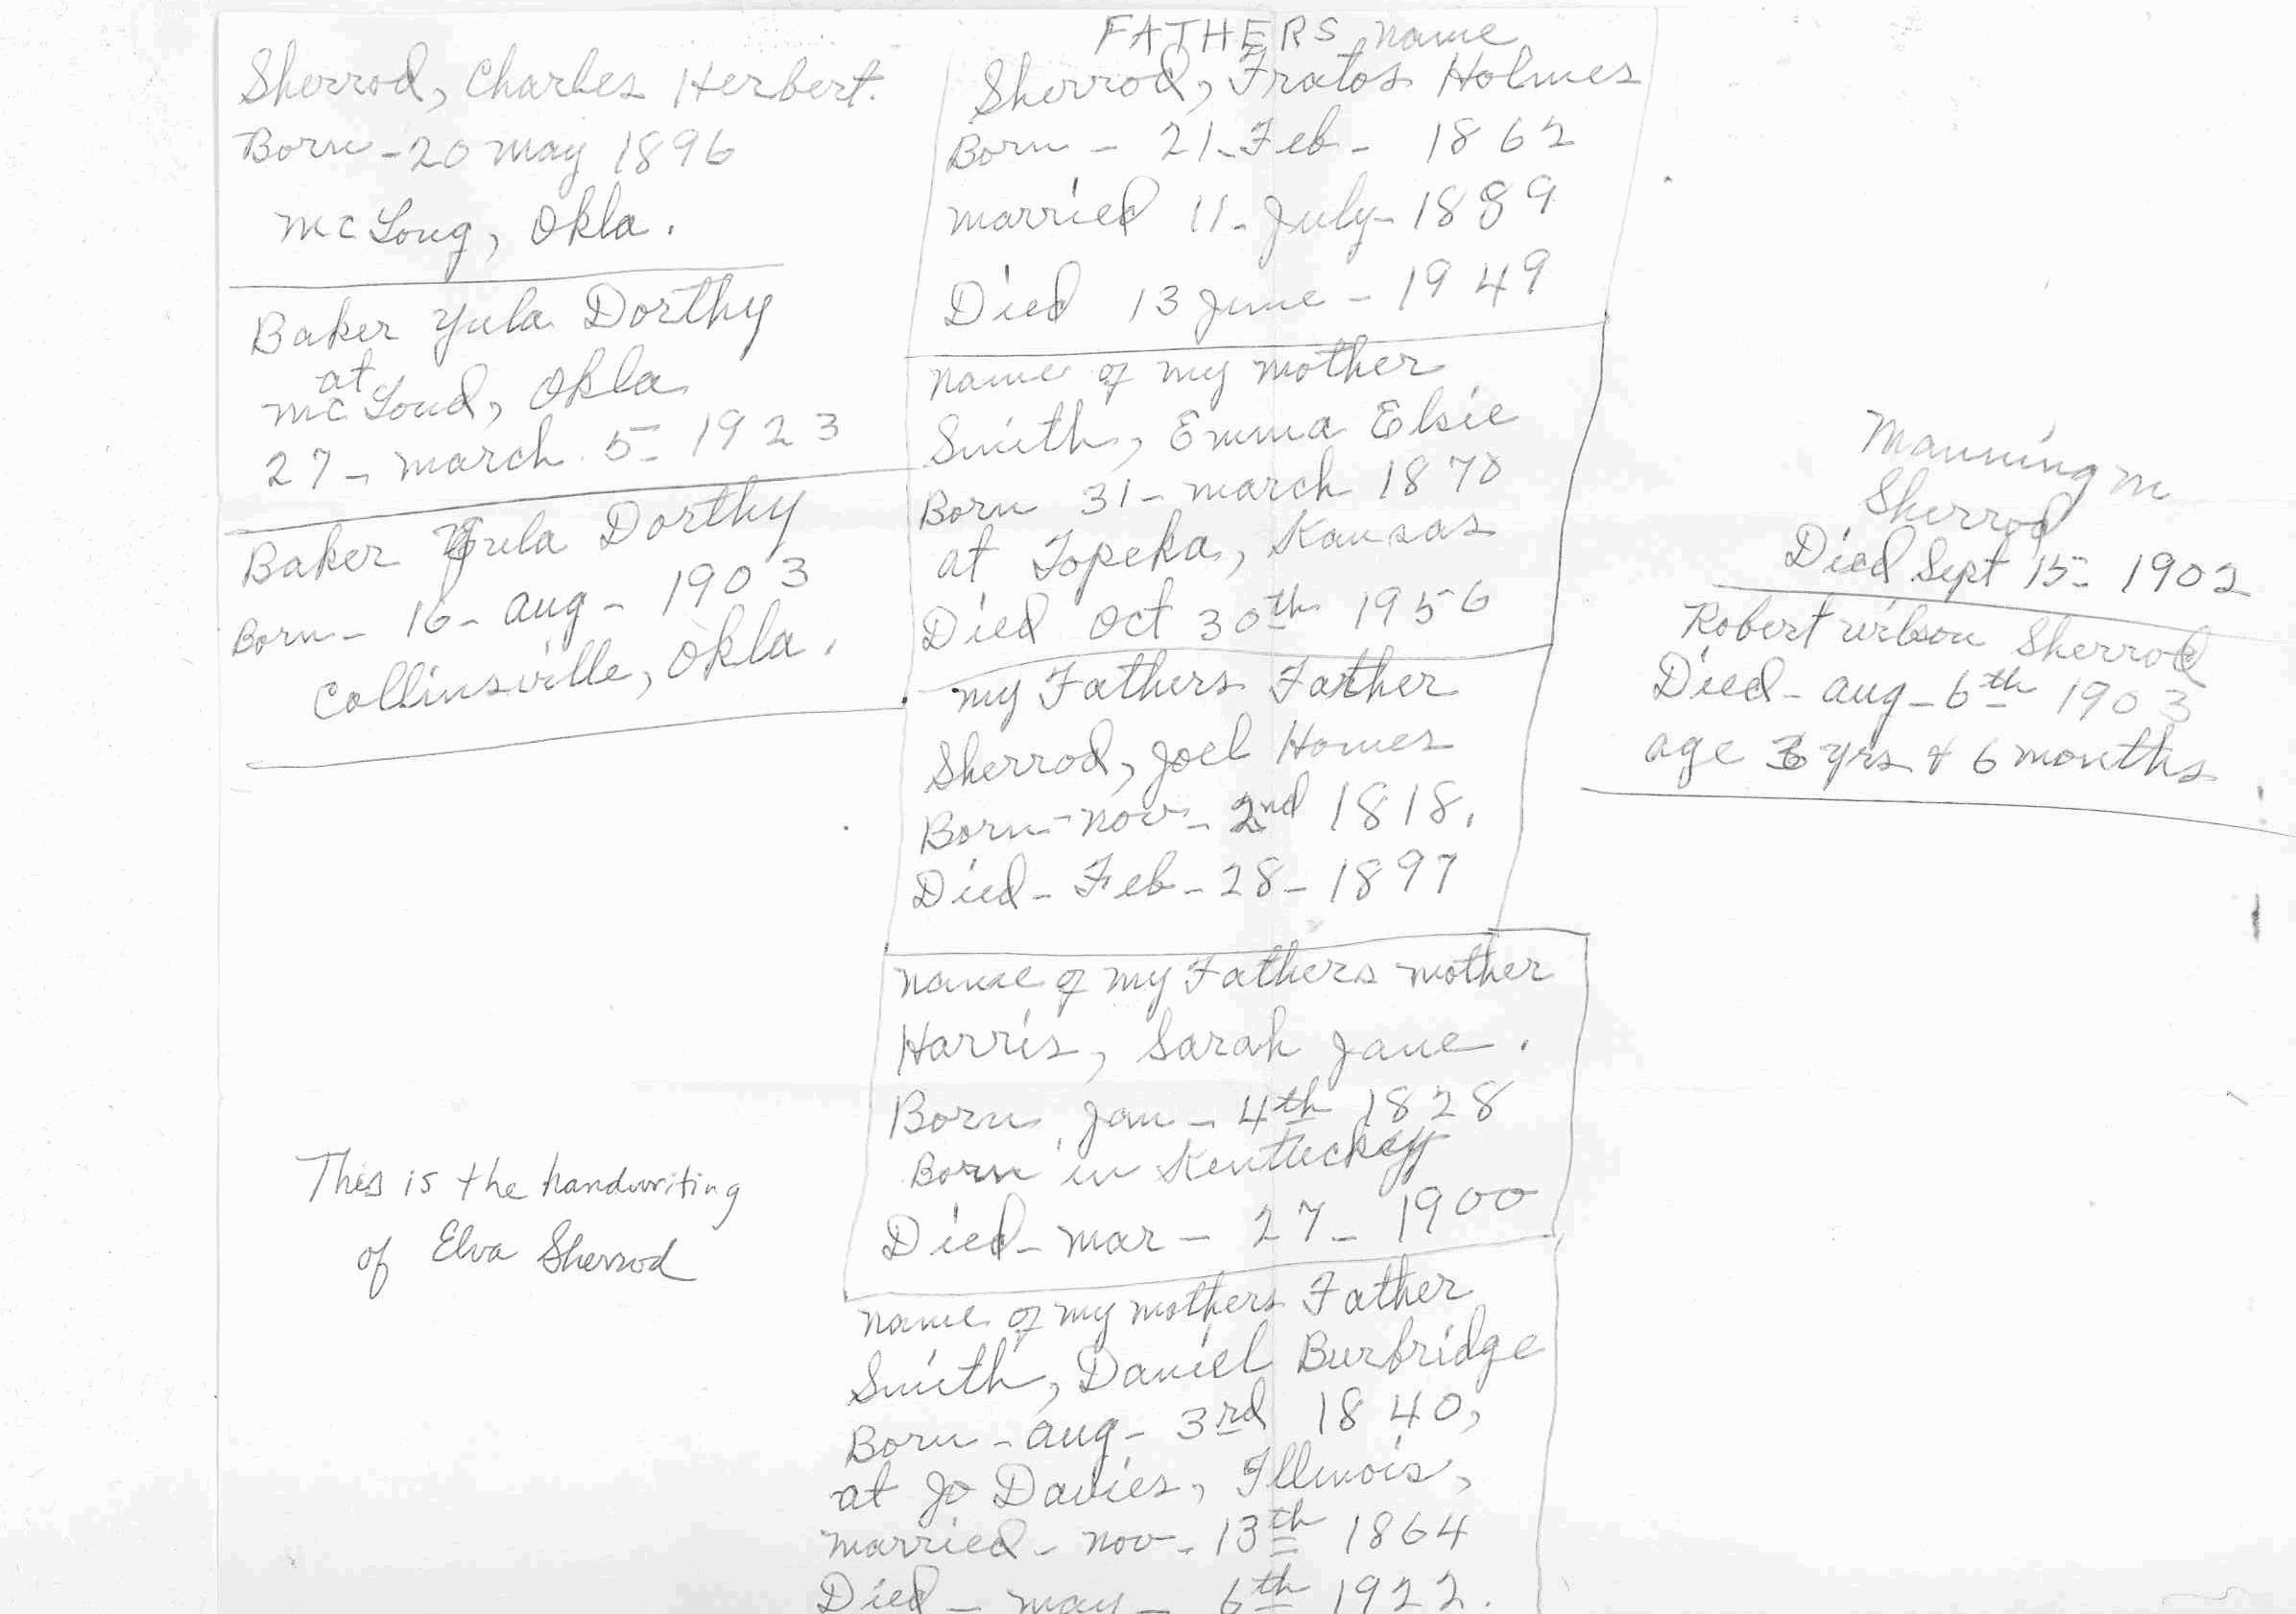 Sherrod, Charles Herbert.
Born - 20 May 1896
McLoug, Okla.
Baker Yula Dorthy
at
McLoud, Okla
27 - March. 5 - 1923
Baker Yula Dorthy
Born - 16 - Aug - 1903
Collinsville, Okla.
This is the handwriting
of Elva Sherrod
FATHERS Name
Sherrod, Fratos Holmes
Born - 21 - Feb - 1862
Married 11 - July - 1889
Died 13 June - 1949
Name of my mother
Smith, Emma Elsie
Born 31 - March 1870
at Topeka, Kansas
Died Oct 30th 1956
My Fathers Father
Sherrod, Joel Homes
Born - Nov - 2nd 1818.
Died - Feb - 28 - 1897
Name of my Fathers mother
Harris, Sarah Jane.
Born Jan - 4th 1828
Born in Kentuckey
Died - Mar - 27 - 1900
Name of my mothers Father
Smith, Daniel Burbridge
Born - Aug - 3rd 1840,
at Jo Davies, Illinois,
Married - Nov - 13th 1864
Died - May - 6th 1922.
Manning M
Sherrod
Died Sept 15 - 1902
Robert Wilson Sherrod
Died - Aug - 6th 1903
age yrs & 6 months